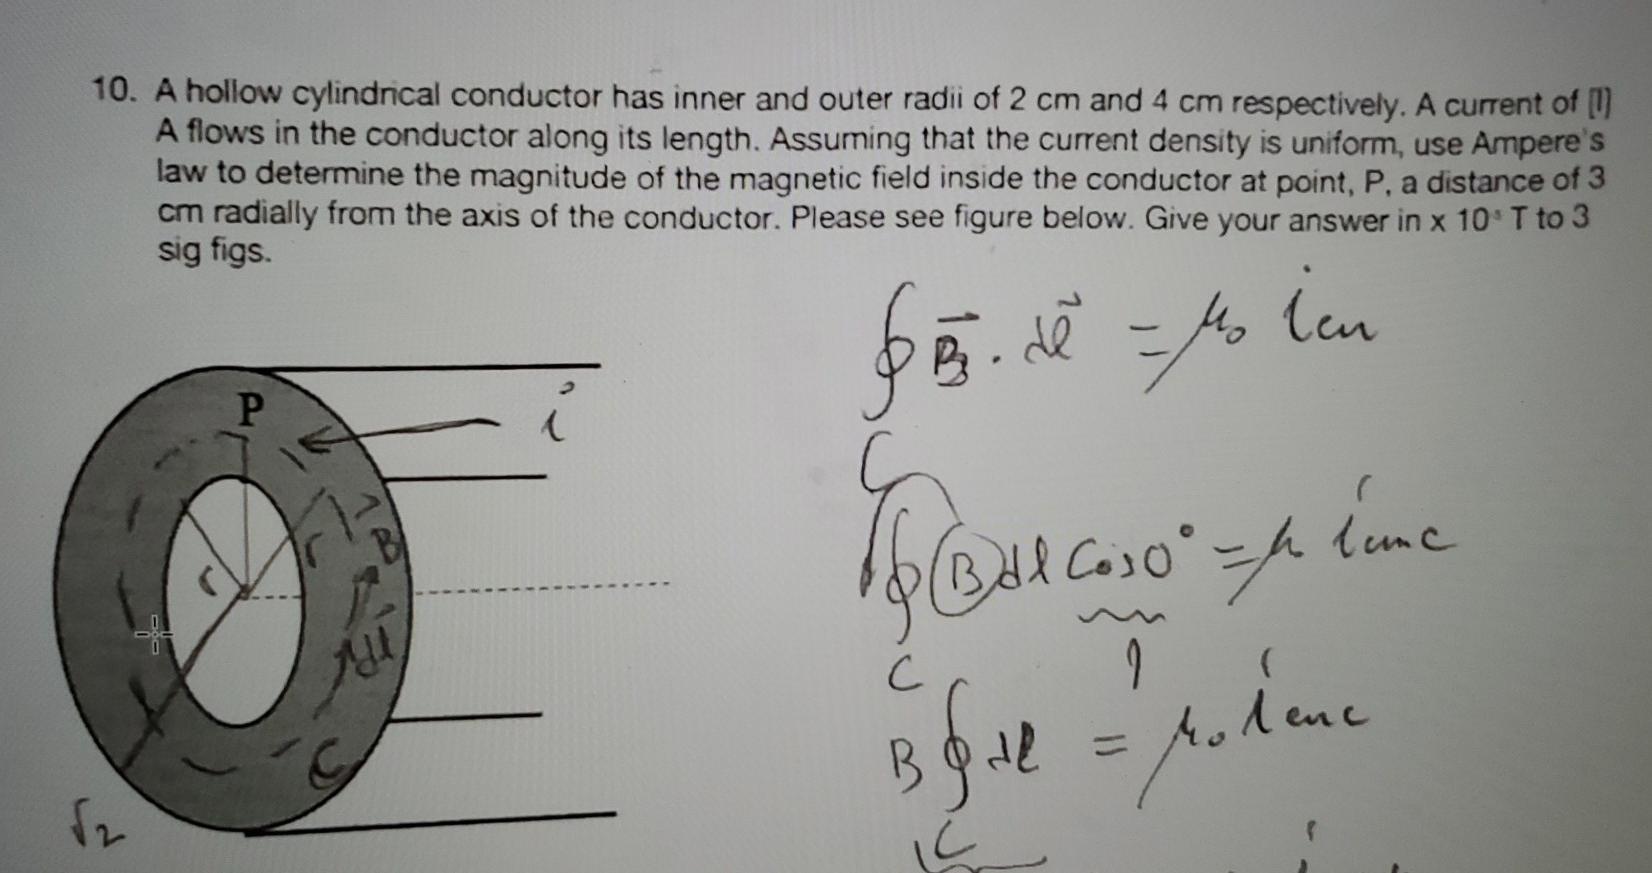 10. A hollow cylindrical conductor has inner and outer radii of 2 cm and 4 cm respectively. A current of [I]
A flows in the conductor along its length. Assuming that the current density is uniform, use Ampere's
law to determine the magnitude of the magnetic field inside the conductor at point, P, a distance of 3
cm radially from the axis of the conductor. Please see figure below. Give your answer in x 10 T to 3
sig figs.
∮ B⃗ . dl⃗ = μ₀ ien
C
P
i
∮ B dl Cos 0° = μ ienc
C
1
r
r
B
dl
B ∮ dl = μ₀ ienc
C
C
r₂